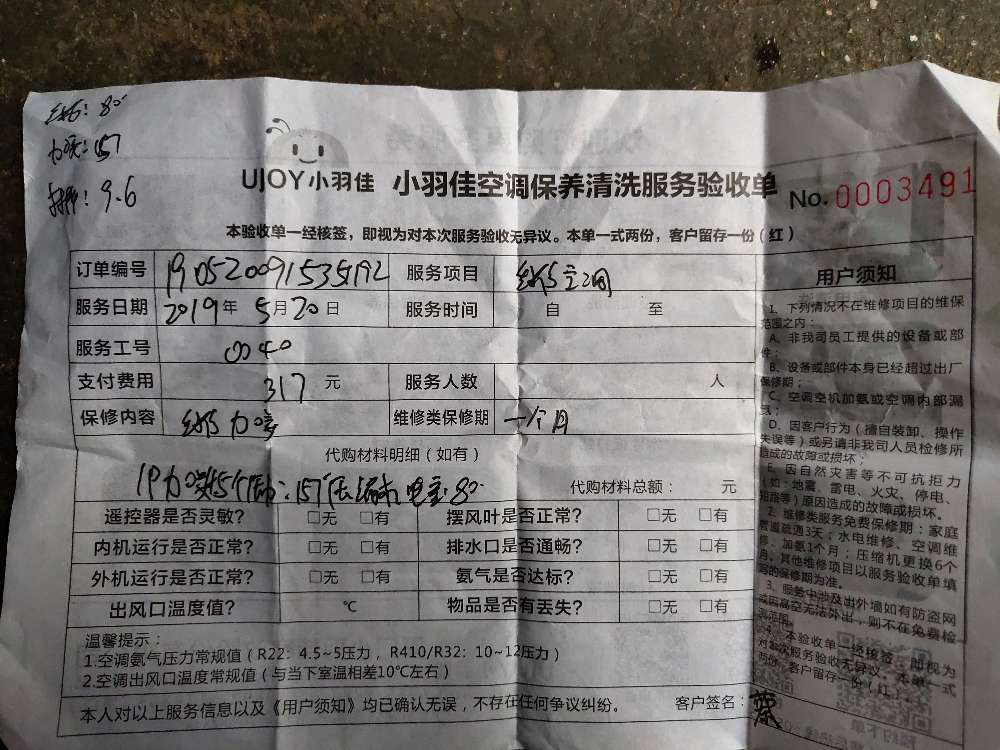 80
157
9.6
UJOY小羽佳 小羽佳空调保养清洗服务验收单 No.0003491
本验收单一经核签，即视为对本次服务验收无异议。本单一式两份，客户留存一份（红）
订单编号 190520091535192 服务项目
服务日期 2019年 5月20日 服务时间 自 至
服务工号 0040
支付费用 317 元 服务人数 人
保修内容 维修类保修期 一个月
代购材料明细（如有）
代购材料总额： 元
遥控器是否灵敏？ □无 □有 摆风叶是否正常？ □无 □有
内机运行是否正常？ □无 □有 排水口是否通畅？ □无 □有
外机运行是否正常？ □无 □有 氨气是否达标？ □无 □有
出风口温度值？ ℃ 物品是否有丢失？ □无 □有
温馨提示：
1.空调氨气压力常规值（R22：4.5~5压力，R410/R32：10~12压力）
2.空调出风口温度常规值（与当下室温相差10℃左右）
本人对以上服务信息以及《用户须知》均已确认无误，不存在任何争议纠纷。 客户签名：
用户须知
1、下列情况不在维修项目的维保
范围之内：
A、非我司员工提供的设备或部
件；
B、设备或部件本身已经超过出厂
保修期；
C、空调空机加氨或空调内部漏
氨；
D、因客户行为（擅自装卸、操作
失误等）或另请非我司人员检修所
造成的故障或损坏；
E、因自然灾害等不可抗拒力
（如：地震、雷电、火灾、停电、
短路等）原因造成的故障或损坏。
2、维修类服务免费保修期：家庭
管道疏通3天；水电维修、空调维
修、加氨1个月；压缩机更换6个
月，其他维修项目以服务验收单填
写的保修期为准。
3、服务中涉及出外墙如有防盗网
或因高空无法外出，则不在免费检
测范围。
4、本验收单一经核签，即视为
对本次服务验收无异议。本单一式
两份，客户留存一份（红）。